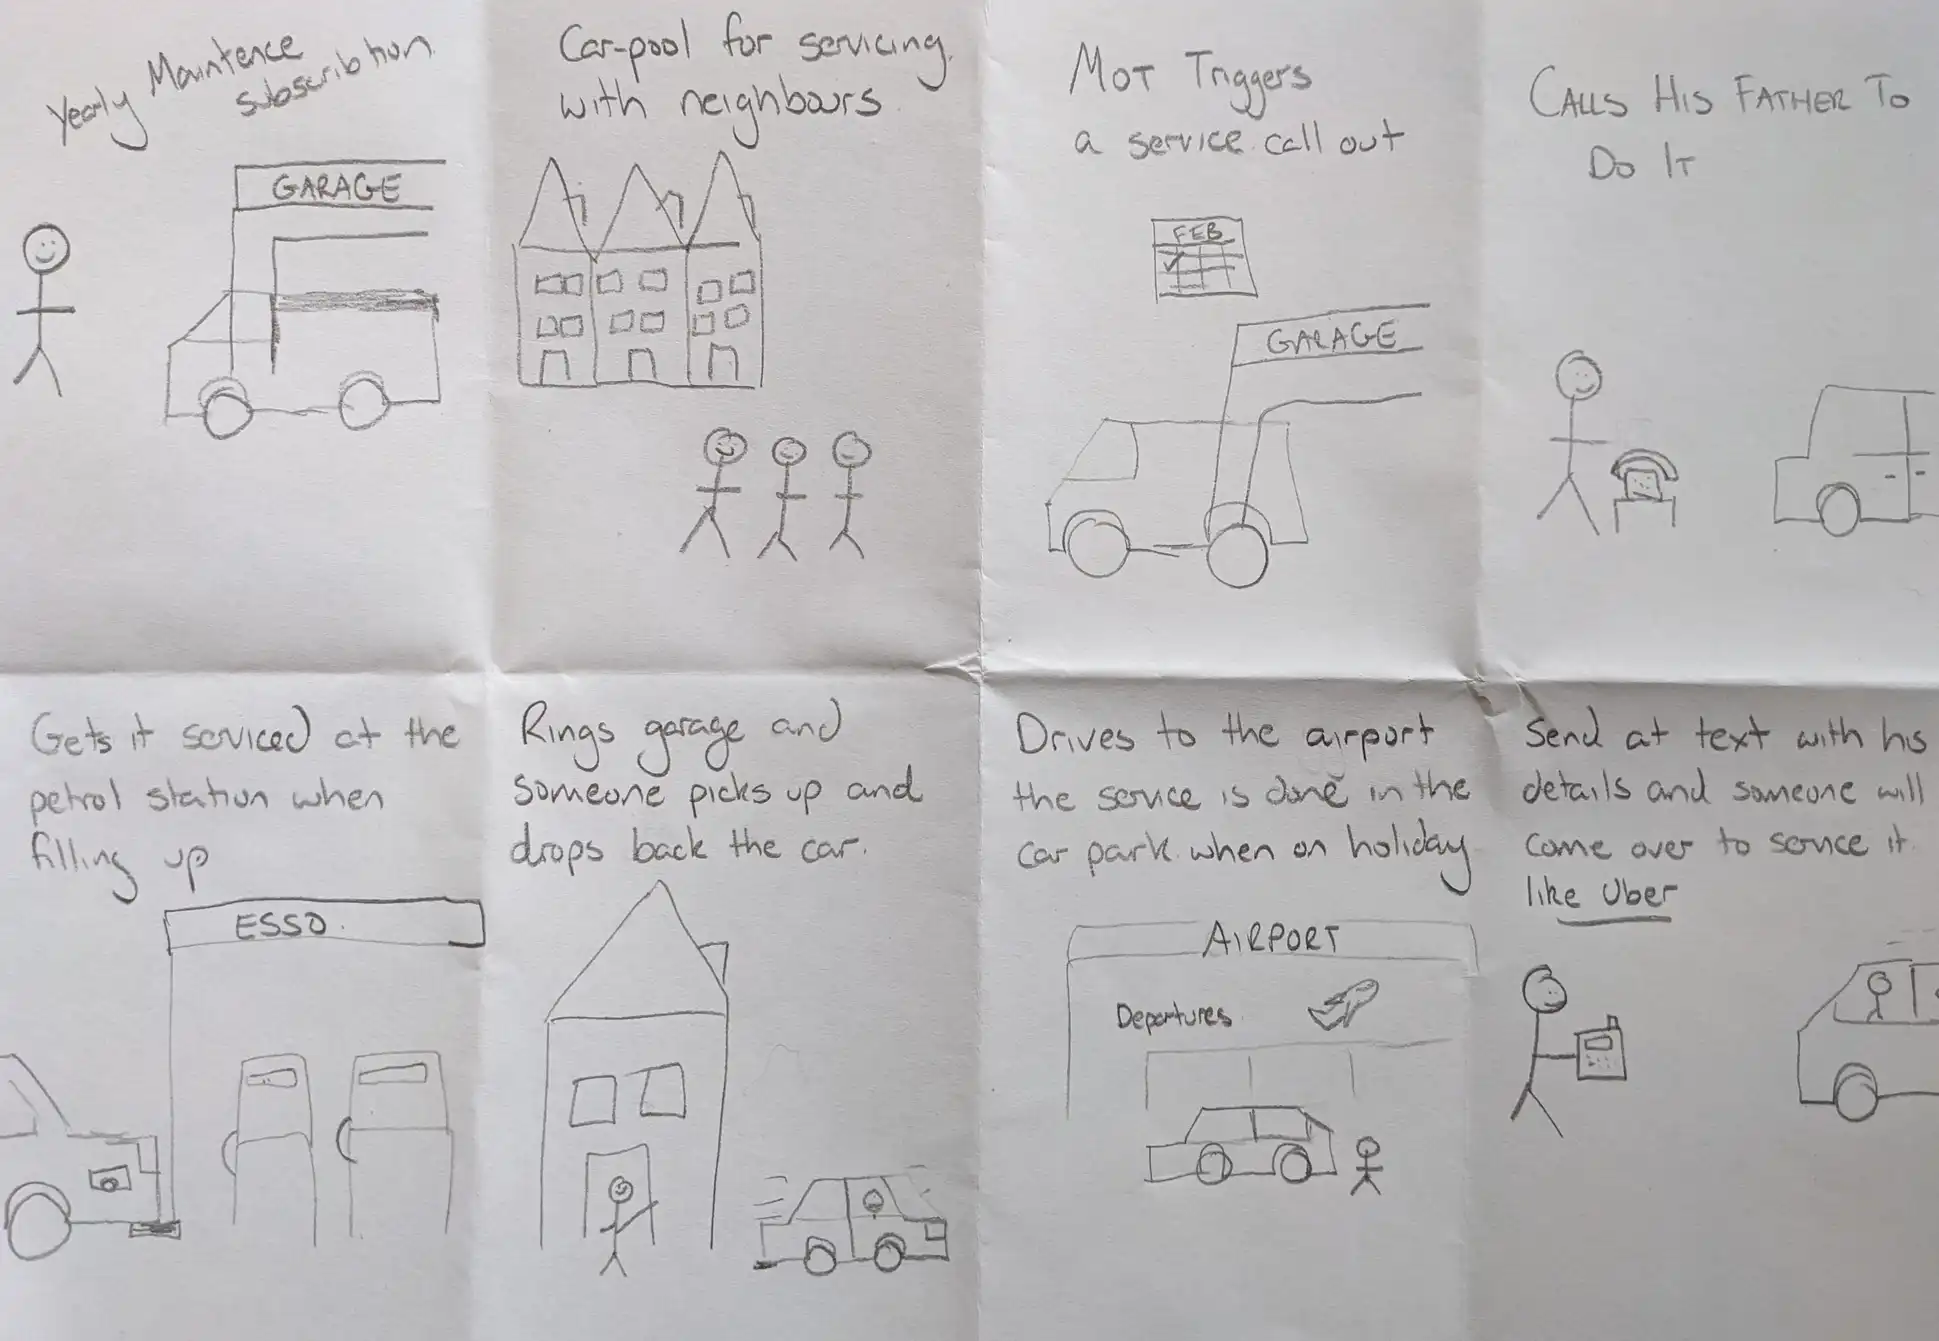 Yearly Maintence
subscribtion
GARAGE
Car-pool for servicing
with neighbours
MOT Triggers
a service call out
FEB
GARAGE
CALLS HIS FATHER TO
DO IT
Gets it serviced at the
petrol station when
filling up
ESSO
Rings garage and
someone picks up and
drops back the car.
Drives to the airport
the service is done in the
car park when on holiday
AIRPORT
Departures
Send at text with his
details and someone will
come over to service it
like Uber